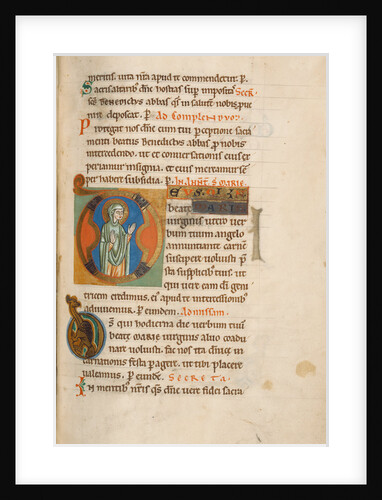 meritis. uita nr̄a apud te commendetur. P.
Sacris altaribus dn̄e hostias sup impositas Secr.
scs̄ benedictus abbas qs̄ in salute nobis ꝓue
nire deposcat. P. Ad Complendum.
Protegat nos dn̄e cum tui ꝑceptione sacra
menti beatus Benedictus abbas ꝓ nobis
intercedendo. ut et conuersationis eius ex
periamur insignia. et eius mereamur sem
per habere subsidia. P. In Annt̄. S. Marie.
beate
uirginis utero ver
bum tuum angelo
annuntiante carnē
suscipere uoluisti. p̄
sta supplicibus tuis. ut
qui uere eam di geni
tricem credimus. eius apud te intercessionibus
adiuuemur. P. eundem. Ad missam.
Ds̄ qui hodierna die uerbum tuū
beate MARIE uirginis aluo coadu
nare uoluisti. fac nos ita dn̄e in
carnationis festa ꝑagere. ut tibi placere
ualeamus. P. eundē. Secreta.
In mentibus nr̄is qs̄ dn̄e uere fidei sacra